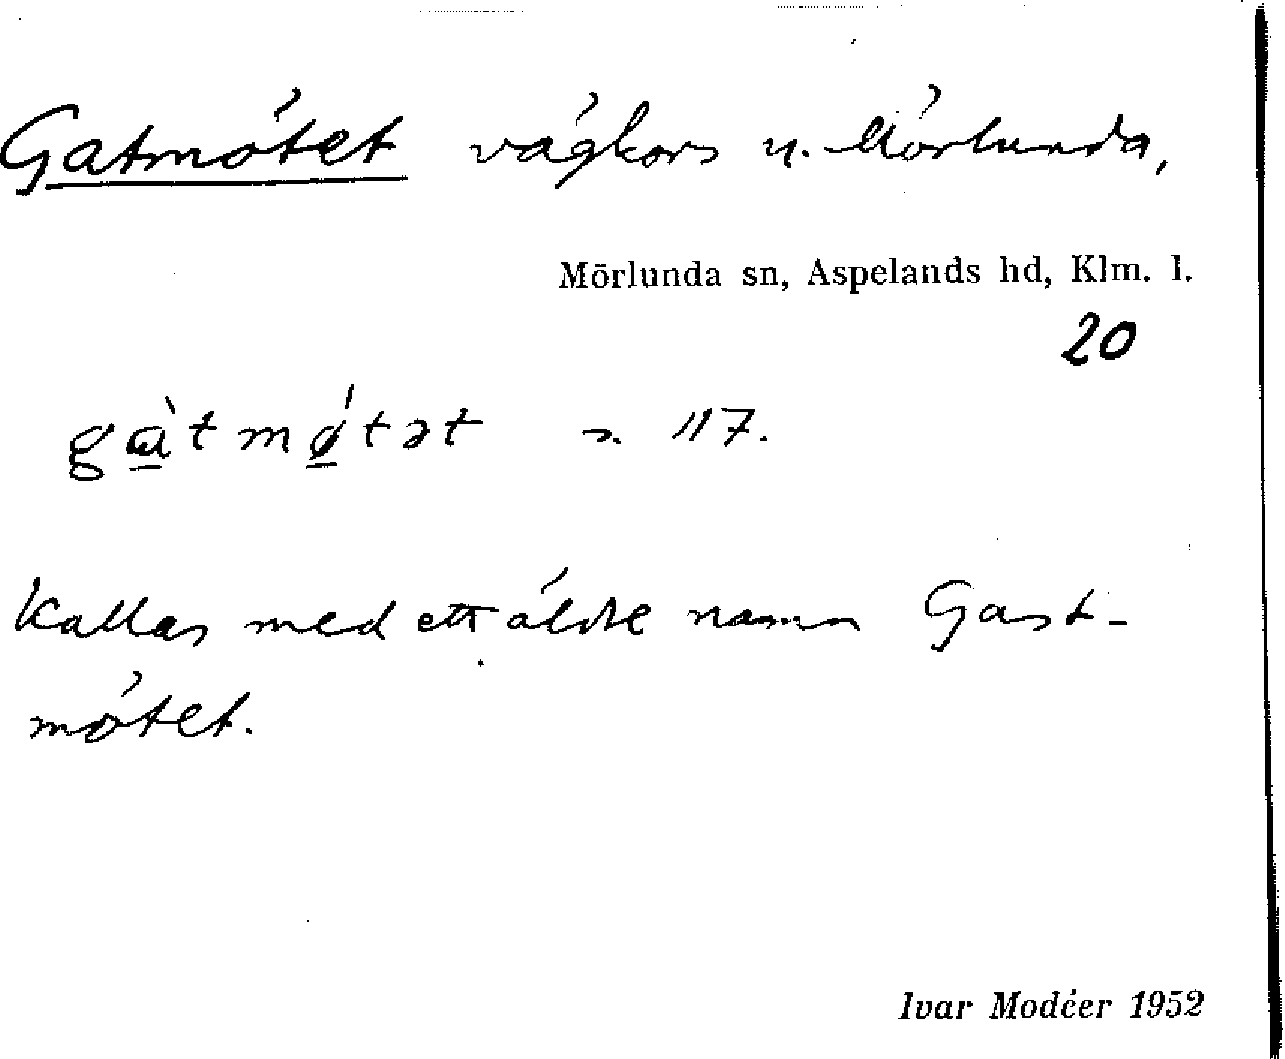 Gatmötet vägkors u. Mörlunda,
Mörlunda sn, Aspelands hd, Klm. l.
20
gàtmǿtət n. 117.
Kallas med ett äldre namn Gast-
mötet.
Ivar Modéer 1952